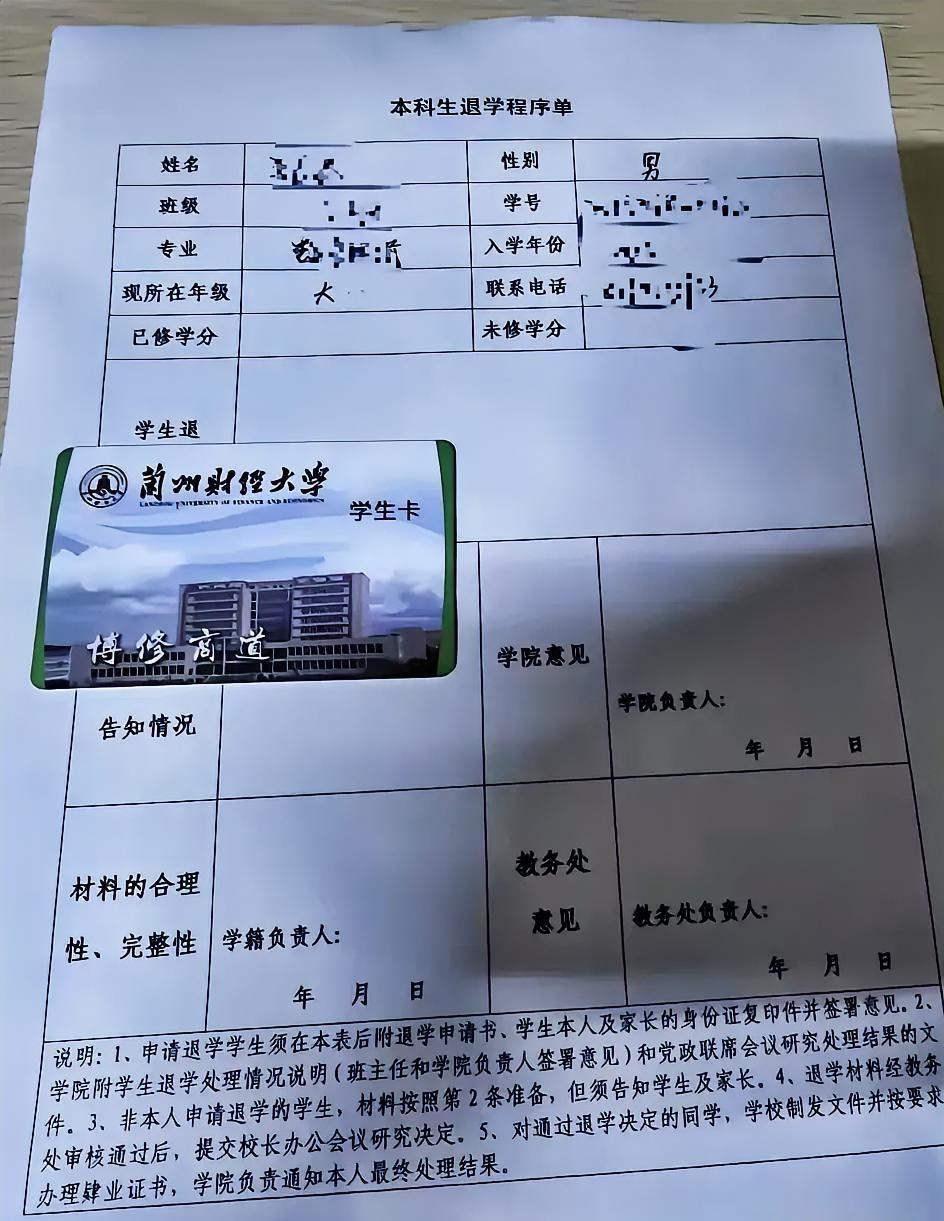 本科生退学程序单
姓名 性别 男
班级 学号
专业 入学年份
现所在年级 大 联系电话
已修学分 未修学分
学生退
兰州财经大学
LANZHOU UNIVERSITY OF FINANCE AND ECONOMICS
学生卡
博修商道
告知情况
学院意见
学院负责人:
年 月 日
材料的合理
性、完整性
学籍负责人:
年 月 日
教务处
意见
教务处负责人:
年 月 日
说明: 1、申请退学学生须在本表后附退学申请书、学生本人及家长的身份证复印件并签署意见。2、
学院附学生退学处理情况说明(班主任和学院负责人签署意见)和党政联席会议研究处理结果的文
件。3、非本人申请退学的学生,材料按照第2条准备,但须告知学生及家长。4、退学材料经教务
处审核通过后,提交校长办公会议研究决定。5、对通过退学决定的同学,学校制发文件并按要求
办理肄业证书,学院负责通知本人最终处理结果。